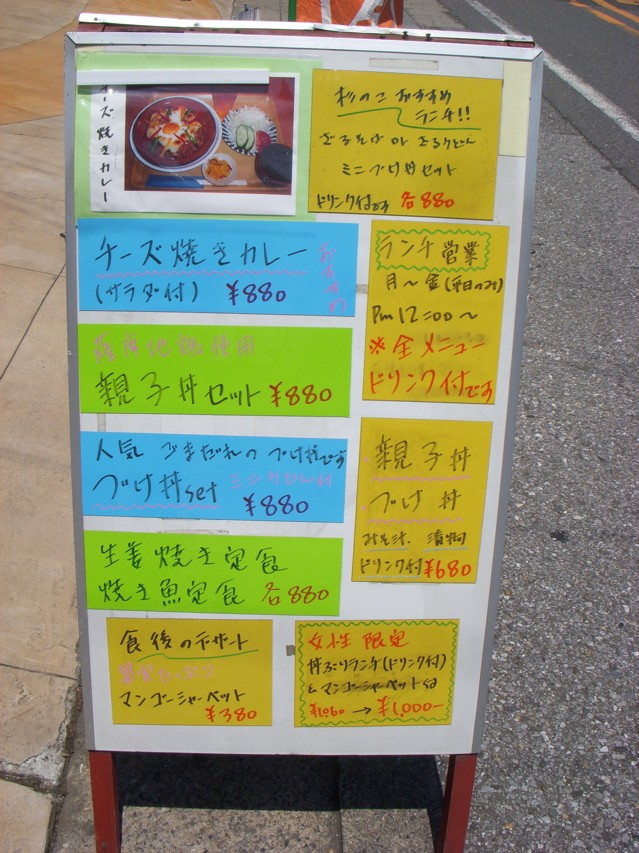 チーズ焼きカレー
杉のこおすすめ
ランチ!!
ざるそば or ざるうどん
ミニづけ丼セット
ドリンク付です 各880
チーズ焼きカレー
(サラダ付) ¥880
おすすめ
薩摩地鶏使用
親子丼セット ¥880
人気 ごまだれのづけ丼です
づけ丼set ミニうどん付
¥880
生姜焼き定食
焼き魚定食 各880
ランチ営業
月～金(平日のみ)
Pm12:00～
※全メニュー
ドリンク付です
親子丼
づけ丼
みそ汁. 漬物
ドリンク付¥680
食後のデザート
マンゴーシャーベット
¥380
女性限定
丼ぶりランチ(ドリンク付)
マンゴーシャーベット
¥1060 → ¥1,000-